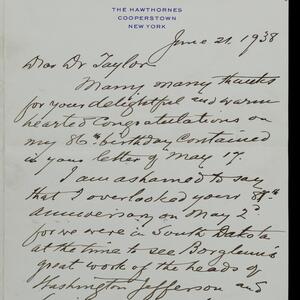 THE HAWTHORNES
COOPERSTOWN
NEW YORK
June 21, 1938
Dear Dr Taylor
Many many thanks
for your delightful and warm
hearted Congratulations on
my 86th birthday contained
in your letter of May 17.
I am ashamed to say
that I overlooked your
anniversary on May 2d
for we were in South Dakota
at the time to see Borglum's
great work of the heads of
Washington Jefferson and